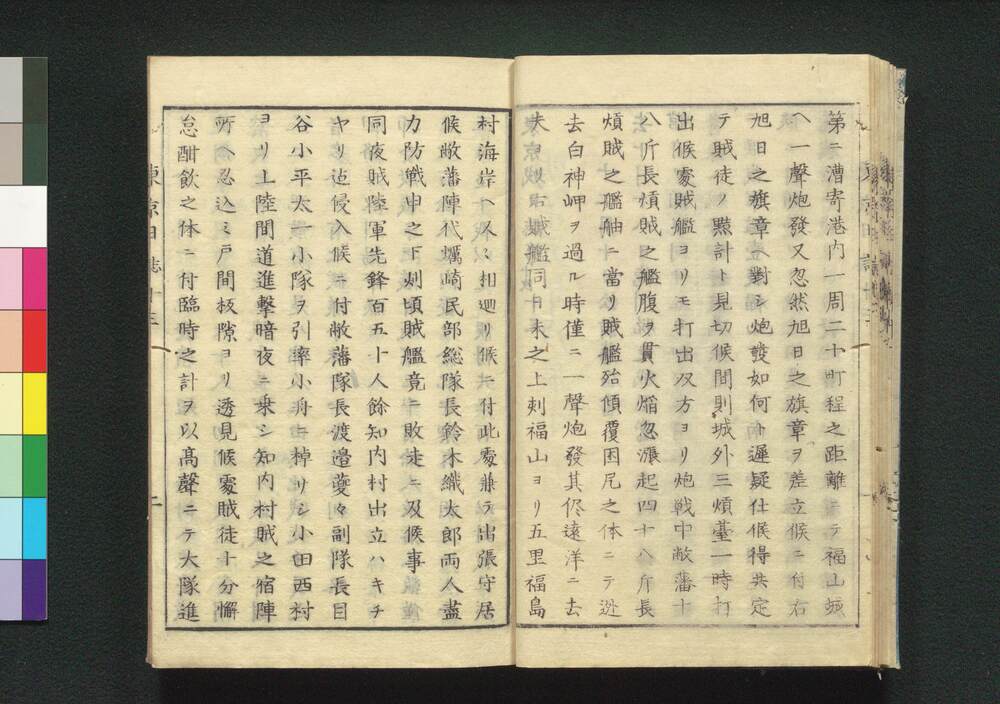 第ニ漕寄港内一周二十町程之距離ニテ福山城
ヘ一聲炮發又忽然旭日之旗章ヲ差立候ニ付右
旭日之旗章ヘ對シ炮發如何ト遲疑仕候得共定
テ賊徒ノ黠計ト見切候間則城外三煩臺一時打
出候處賊艦ヨリモ打出双方ヨリ炮戰中敝藩十
八斤長煩賊之艦腹ヲ貫火焔忽漲起四十八斤長
煩賊之艦舳ニ當リ賊艦殆傾覆困厄之体ニテ迯
去白神岬ヲ過ル時僅ニ一聲炮發其侭遠洋ニ去
失ヨリ賊艦同日未之上刻福山ヨリ五里福島
村海岸ヘ又々相廻リ候ニ付此處兼テ出張守居
候敝藩陣代蠣崎民部総隊長鈴木織太郎両人盡
力防戰申之下刻頃賊艦竟ニ敗走ニ及候事
同夜賊陸軍先鋒百五十人餘知内村出立ハキチ
ヤリ迠侵入候ニ付敝藩隊長渡邉䕫々副隊長目
谷小平太一小隊ヲ引率小舟ニ棹リシ小田西村
ヨリ上陸間道進撃暗夜ニ乗シ知内村賊之宿陣
所ヘ忍込ミ戸間板隙ヨリ透見候處賊徒十分懈
怠酣飲之体ニ付臨時之計ヲ以髙聲ニテ大隊進
東京日誌十三
二